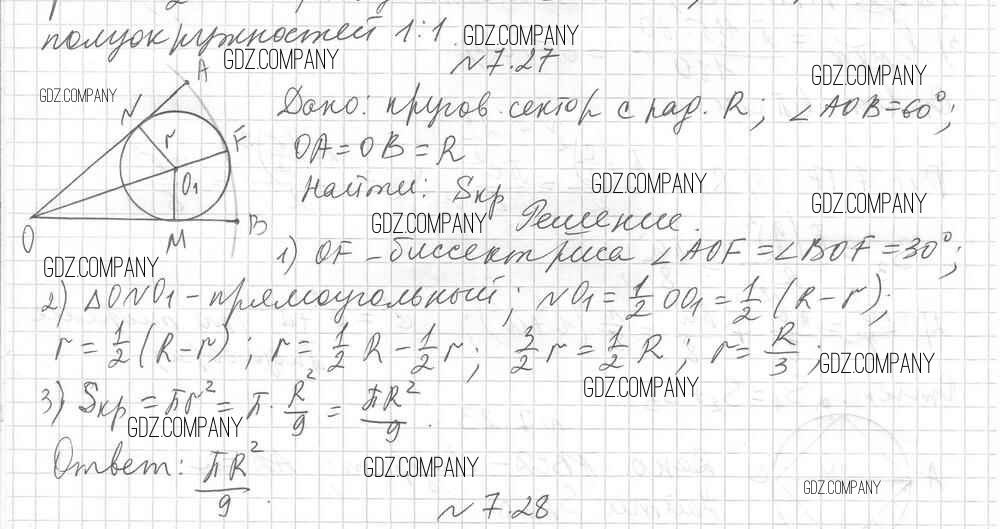 полуокружностей 1:1. GDZ.COMPANY
GDZ.COMPANY N 7.27
GDZ.COMPANY
GDZ.COMPANY
A
N
r
F
O₁
O
M
B
Дано: кругов. сектор с рад. R; ∠AOB=60°;
OA=OB=R
Найти: Sкр GDZ.COMPANY
GDZ.COMPANY Решение. GDZ.COMPANY
1) OF - биссектриса ∠AOF=∠BOF=30°;
GDZ.COMPANY
2) △ONO₁ - прямоугольный; NO₁=1/2 OO₁=1/2 (R-r);
r=1/2(R-r); r=1/2 R-1/2 r; 3/2 r=1/2 R; r=R/3; GDZ.COMPANY
GDZ.COMPANY
3) Sкр=πr²=π·R²/9=πR²/9.
GDZ.COMPANY
Ответ: πR²/9. GDZ.COMPANY
N 7.28 GDZ.COMPANY